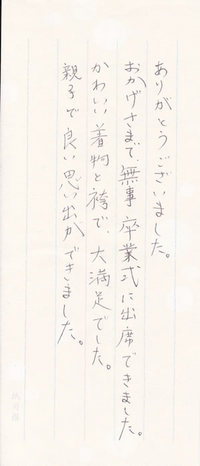 ありがとうございました。
おかげさまで、無事 卒業式に出席できました。
かわいい着物と袴で、大満足でした。
親子で良い思い出ができました。